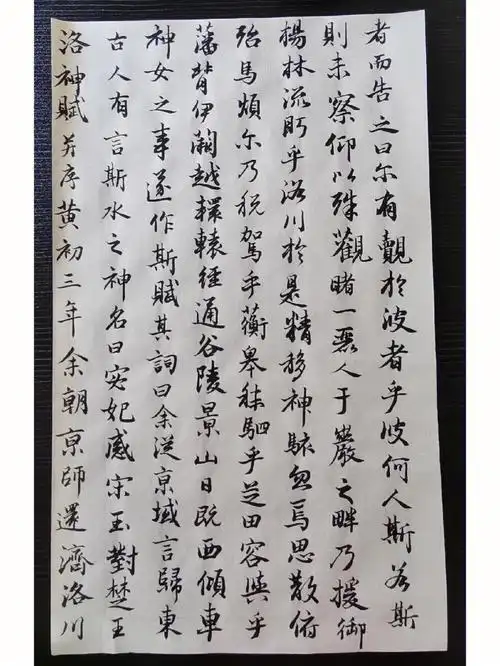 洛神賦并序黄初三年余朝京師還濟洛川
古人有言斯水之神名曰宓妃感宋玉對楚王
神女之事遂作斯賦其詞曰余從京域言歸東
藩背伊闕越轘轅經通谷陵景山日既西傾車
殆馬煩尔乃税駕乎蘅皋秣駟乎芝田容與乎
楊林流眄乎洛川於是精移神駭忽焉思散俯
則未察仰以殊觀睹一麗人于巖之畔乃援御
者而告之曰尔有覿於彼者乎彼何人斯若斯